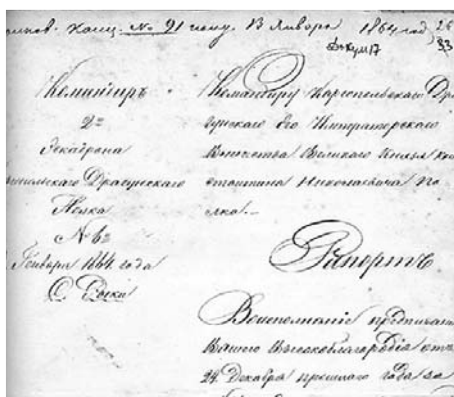 канц. № 91 полу. 13 Января 1864 год
Докум 17
33
Командиръ
2го
Эскадрона
Драгунскаго
Полка
№ 62
Января 1864 года
С.
Командиру Каргопольскаго Дра-
гунскаго Его Императорскаго
Высочества Великаго Князя Кон-
стантина Николаевича По-
лка.
Рапортъ
предписанія
Вашего Высокоблагородія отъ
24 Декабря прошлаго года за